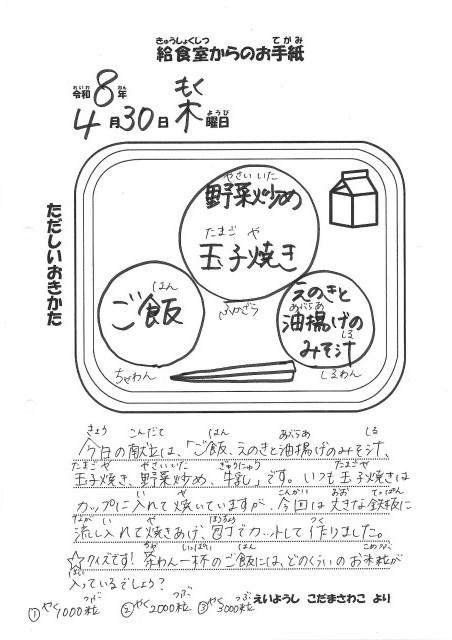 きゅうしょくしつ てがみ
給食室からのお手紙
れいわ ねん もく ようび
令和8年
4月30日 木曜日
ただしいおきかた
やさい いた
野菜炒め
たまご や
玉子焼き
はん
ご飯
ちゃわん
ふかざら
えのきと
あぶらあ
油揚げの
しる
みそ汁
しるわん
きょう こんだて はん あぶらあ しる
今日の献立は、「ご飯、えのきと油揚げのみそ汁、
たまご や やさいいた ぎゅうにゅう たまごや
玉子焼き、野菜炒め、牛乳」です。いつも玉子焼きは
い や こんかい おお てっぱん
カップに入れて焼いていますが、今回は大きな鉄板に
なが い や ほうちょう つく
流し入れて焼きあげ、包丁でカットして作りました。
ちゃ いっぱい はん こめつぶ
☆クイズです!茶わん一杯のご飯には、どのくらいのお米粒が
はい
入っているでしょう?
やく つぶ やく つぶ やく つぶ
①約1000粒 ②約2000粒 ③約3000粒
えいようし こだまさわこ より